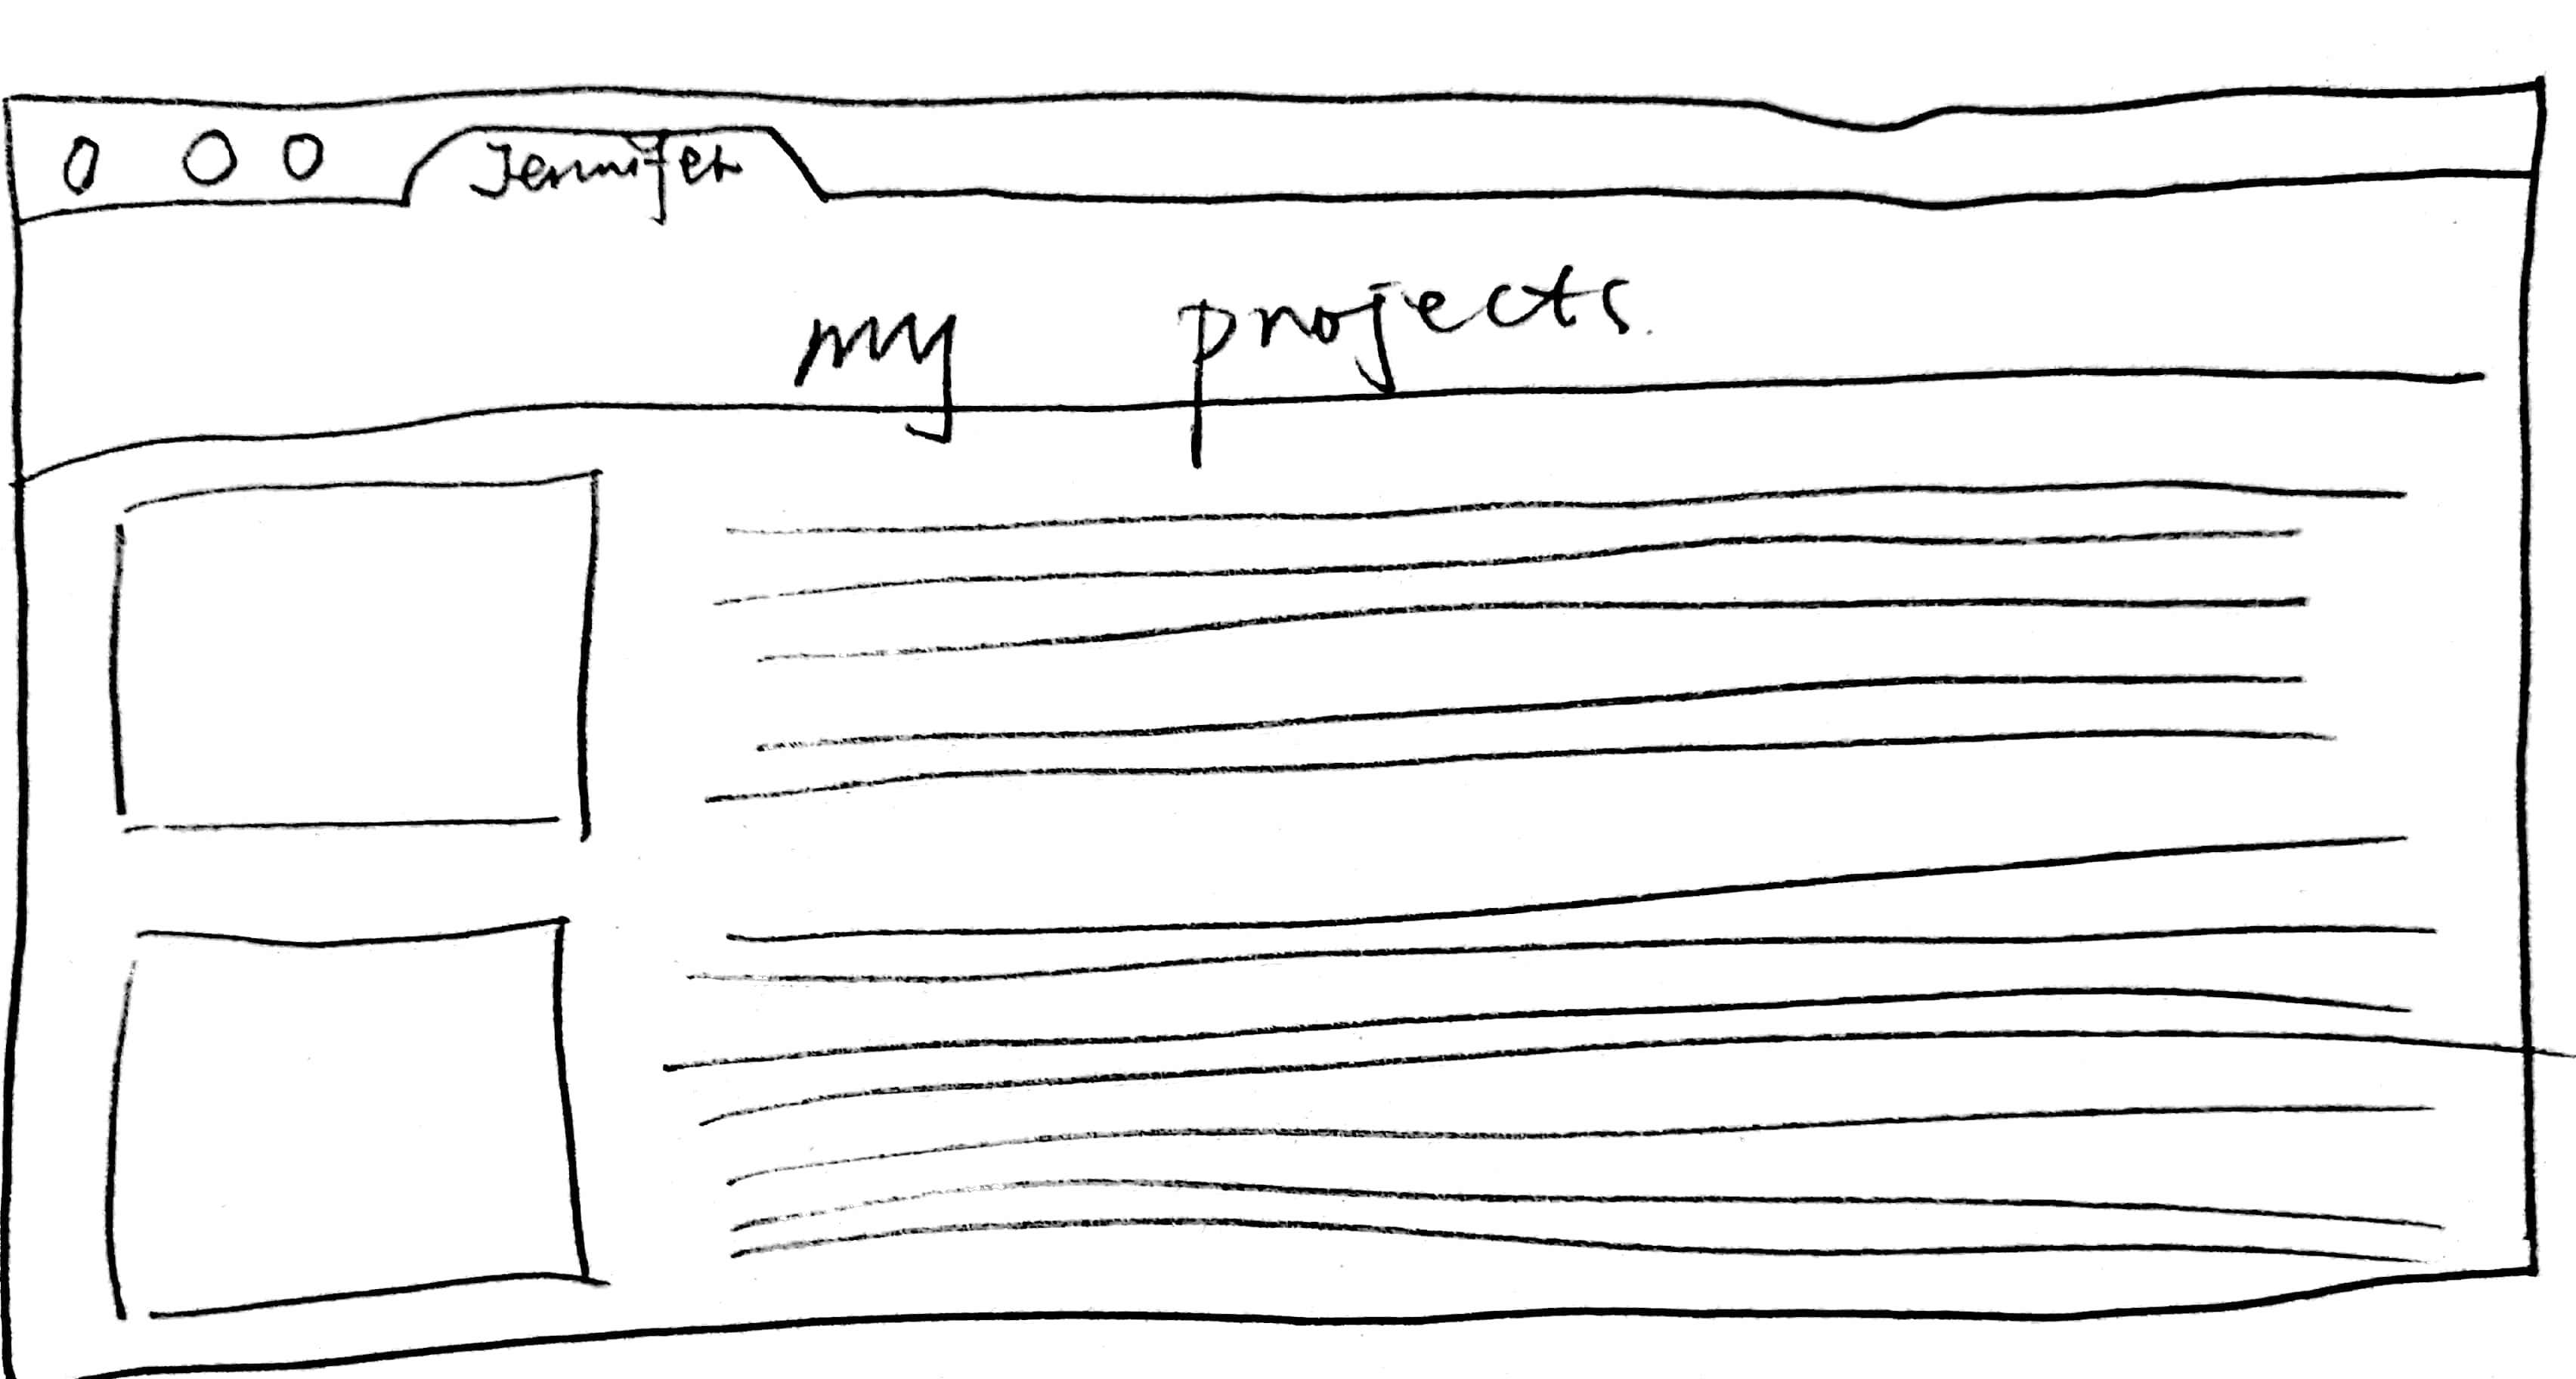 Jennifer
my projects